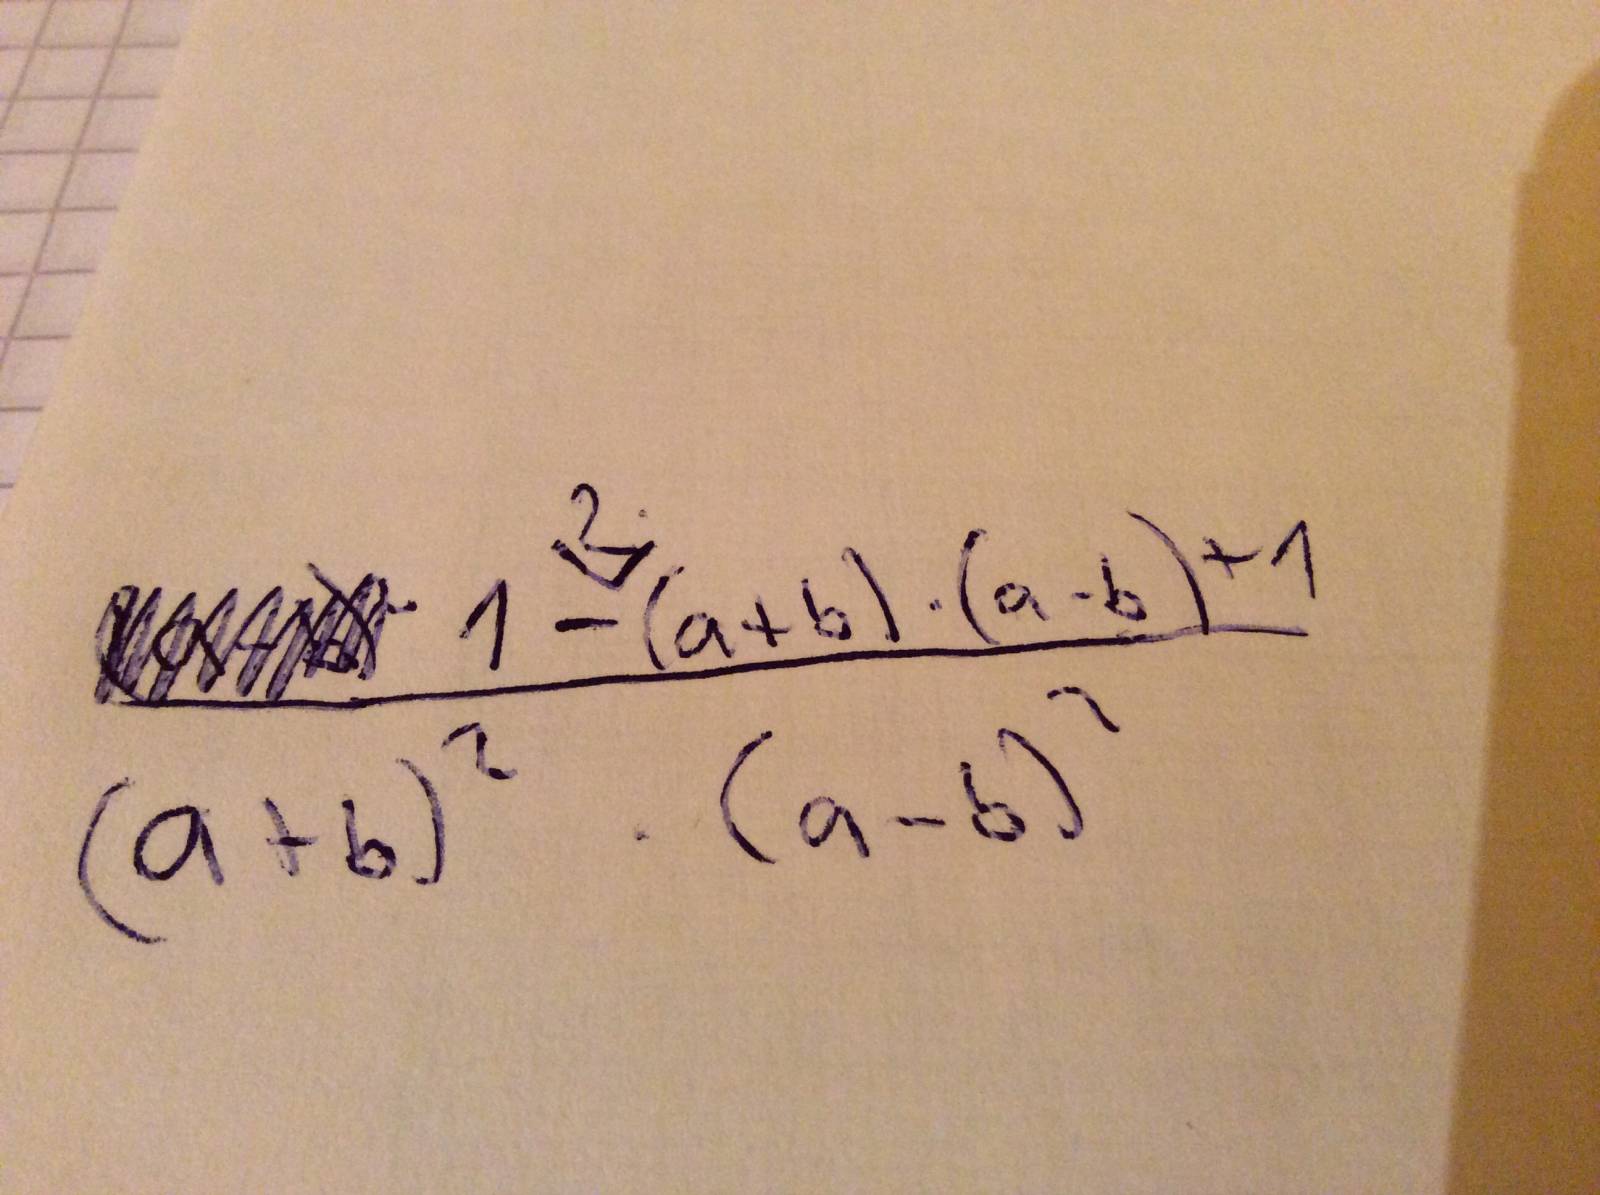 1 - 2 (a+b) · (a-b) + 1
(a+b)² · (a-b)²